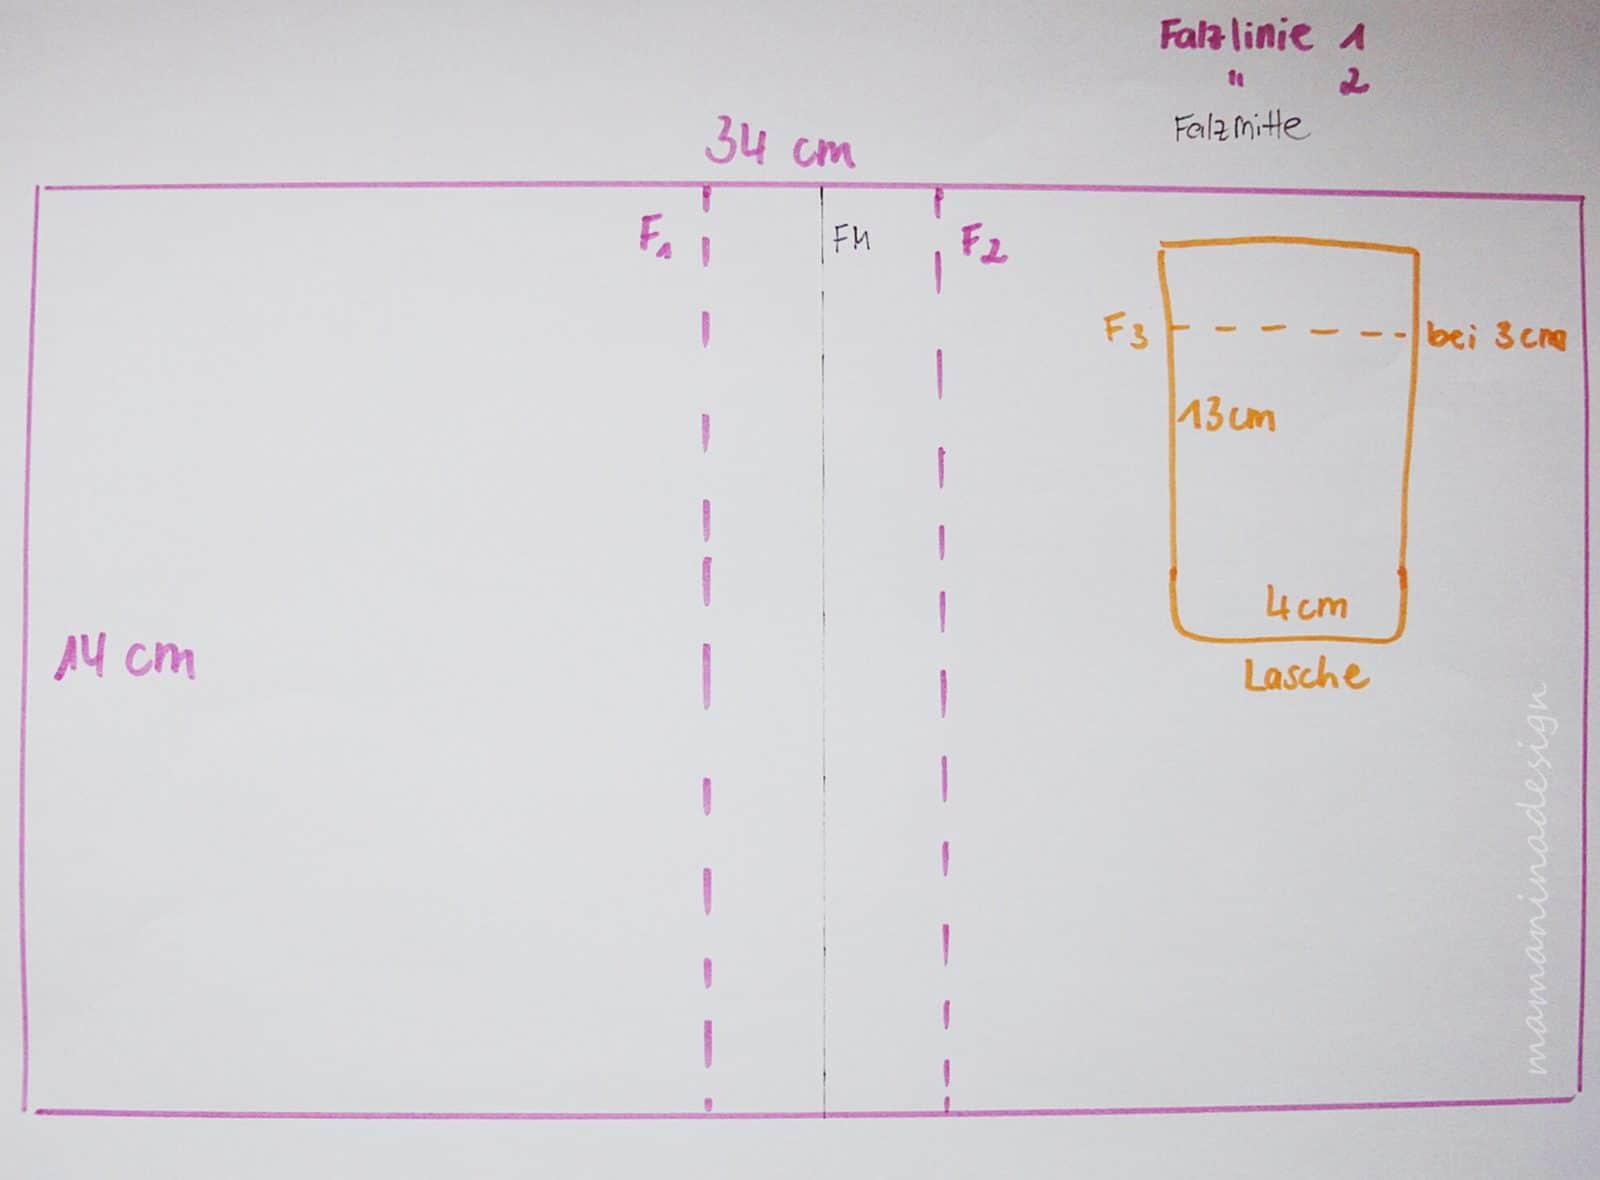 Falzlinie 1
" 2
Falzmitte
34 cm
F1
FM
F2
F3
bei 3cm
13cm
14 cm
4cm
Lasche
mamaninadesign